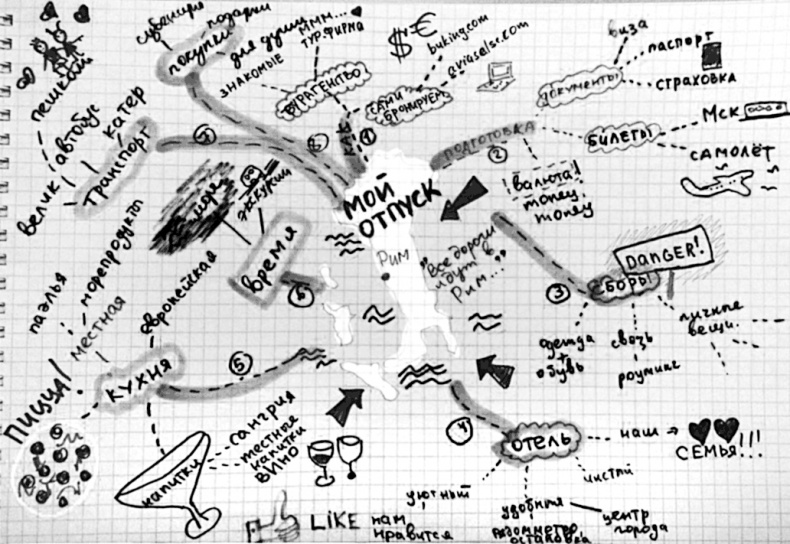 МОЙ
ОТПУСК
Рим
"Все дороги
идут в
Рим..."
1
КАК
ТУРАГЕНТСТВО
ЗНАКОМЫЕ
МММ...
ТУР.ФИРМА
САМИ
БРОНИРУЕМ
$ €
buking.com
aviaselsr.com
2
ПОДГОТОВКА
ДОКУМЕНТЫ
виза
ПАСПОРТ
СТРАХОВКА
БИЛЕТЫ
МСК
САМОЛЁТ
Валюта!
money,
money
3
СБОРЫ
DANGER!
одежда
+
обувь
связь
роуминг
личные
вещи...
4
ОТЕЛЬ
наш
СЕМЬЯ!!!
чистый
центр
города
удобный
уютный
5
КУХНЯ
европейская
местная
морепродукты
паэлья
ПИЦЦА!
напитки
сангрия
местные
напитки
ВИНО
6
время
море
экскурсии
ТРАНСПОРТ
катер
автобус
пешком
велик
покупки
сувениры
подарки
для души
LIKE
нам
нравится